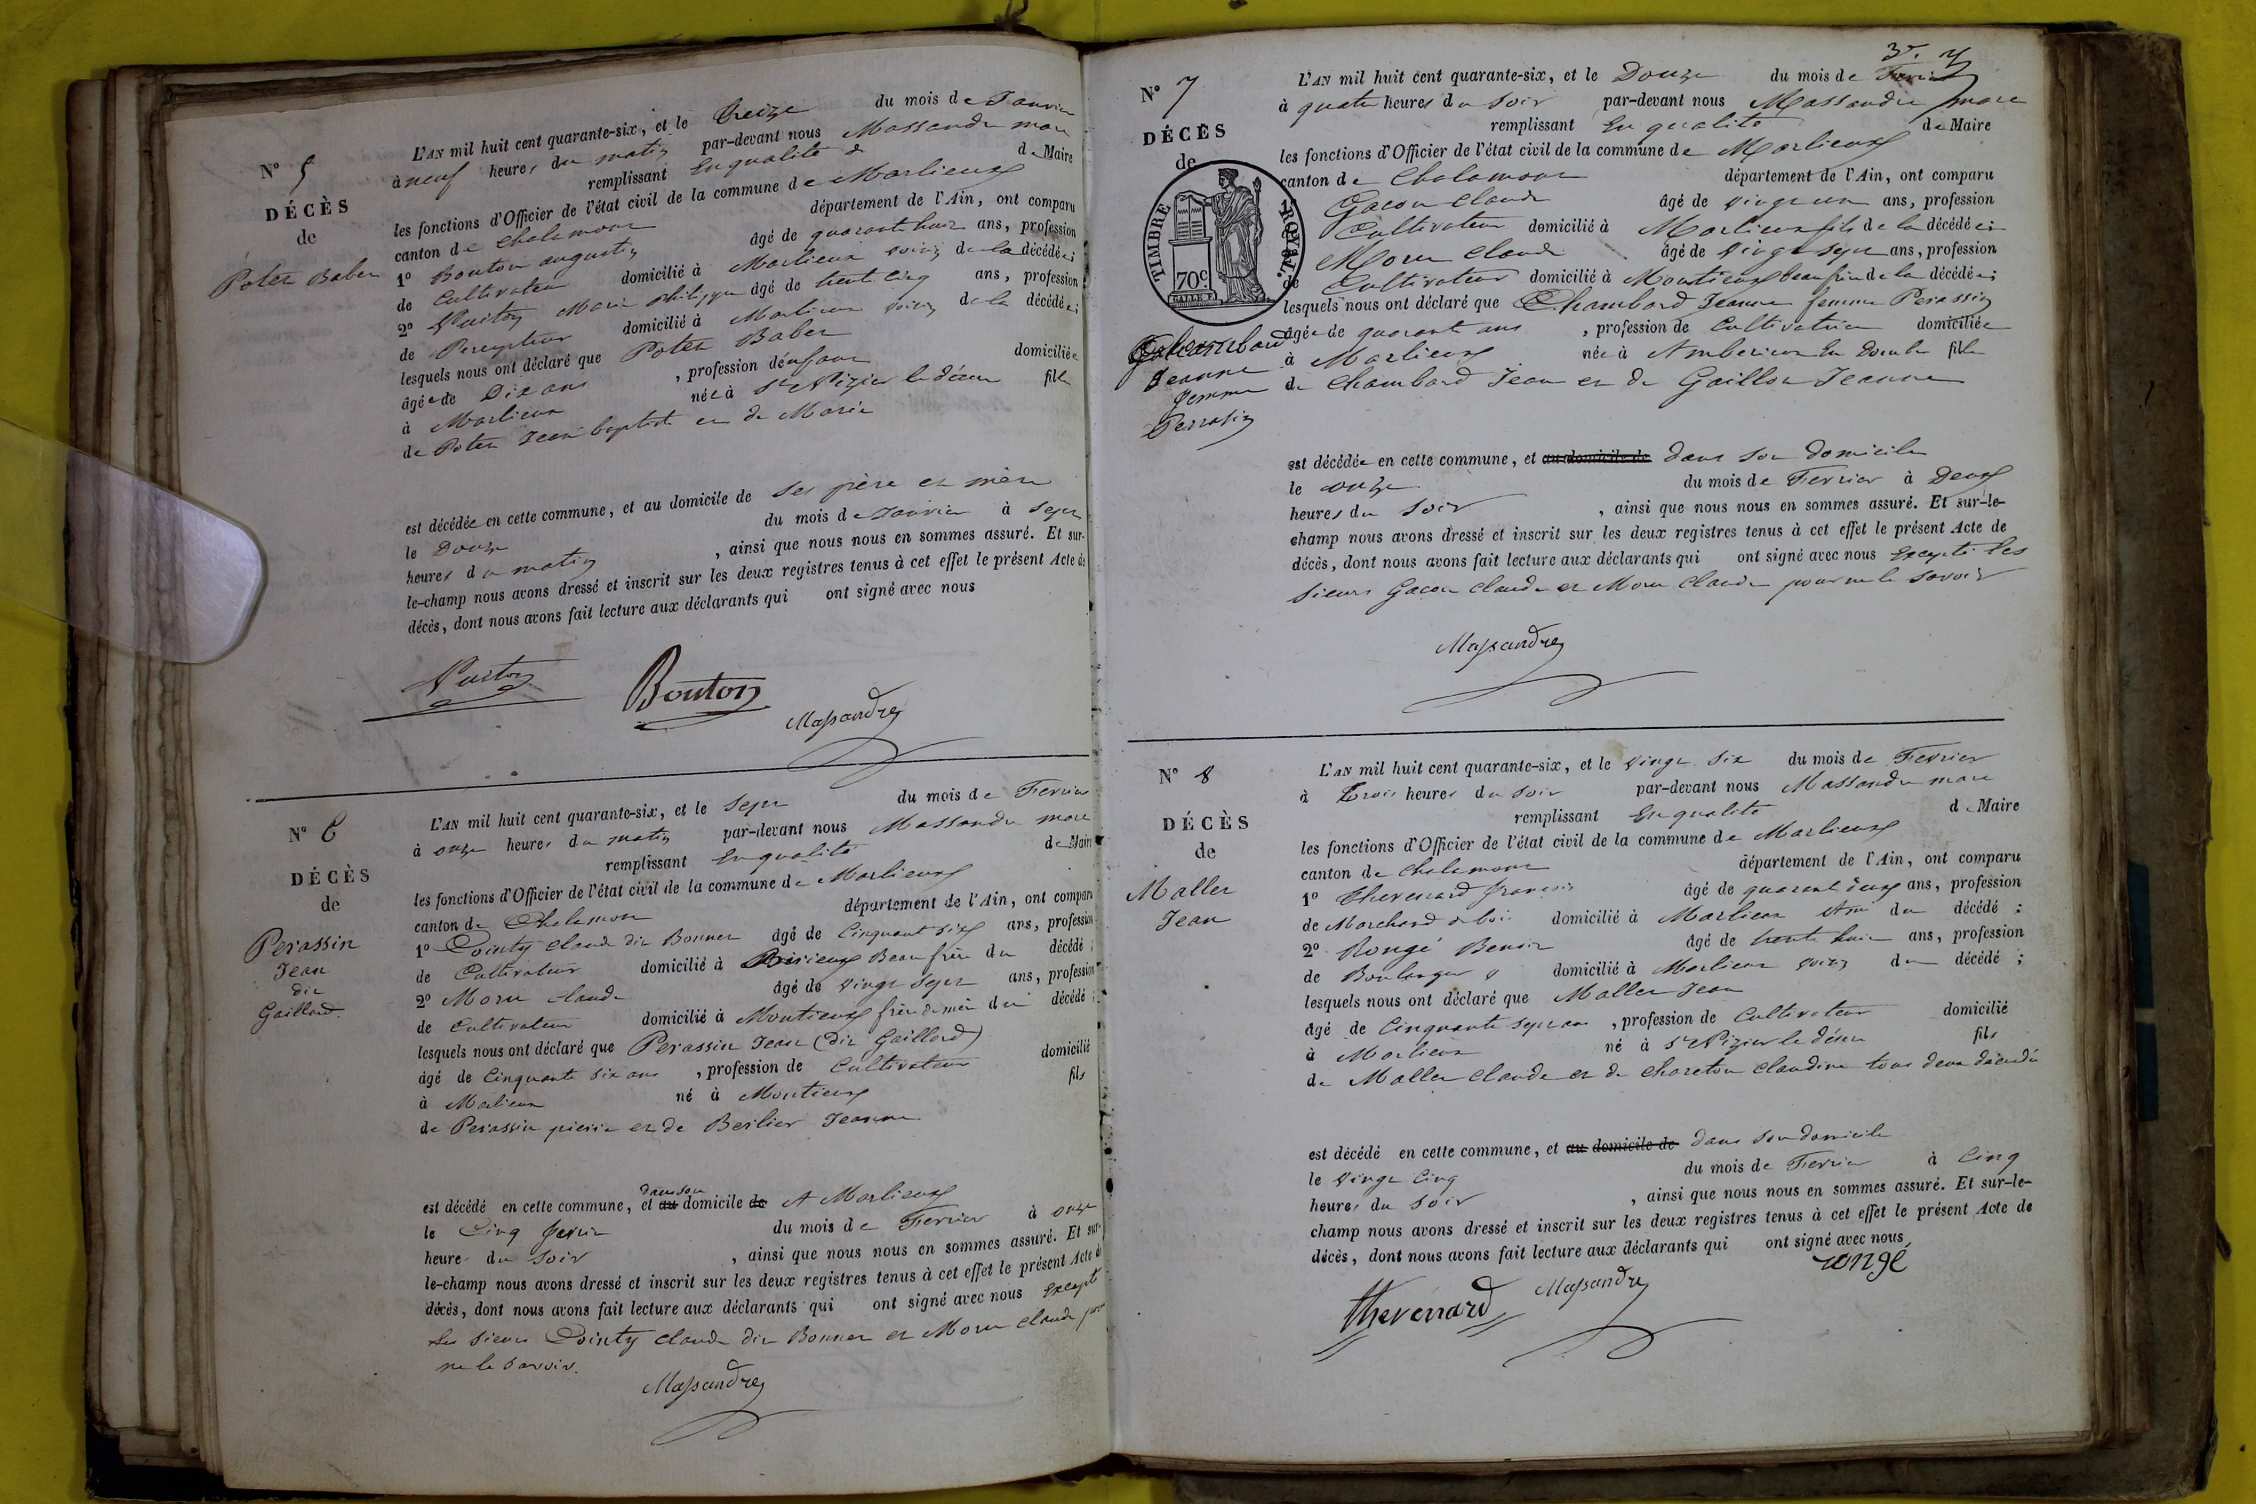 N° 5
DÉCÈS
de
Poter Baben
L'AN mil huit cent quarante-six, et le Treize du mois de Janvier
à neuf heures du matin par-devant nous Massandre marc
remplissant En qualité d de Maire
les fonctions d'Officier de l'état civil de la commune de Marlieux
canton de Chalamon département de l'Ain, ont comparu
1° Bouton augustin âgé de quarant huit ans, profession
de Cultivateur domicilié à Marlieux voisin de la décédée;
2° Vuiton Marie philippe âgé de trente cinq ans, profession
de Percepteur domicilié à Marlieux voisin de la décédée;
lesquels nous ont déclaré que Poter Baben
âgée de Dix ans , profession d'enfant domiciliée
à Marlieux née à St Nizier le désert fille
de Poter Jean baptiste et de Marie
est décédée en cette commune, et au domicile de ses père et mère
le Douze du mois de Janvier à sept
heures du matin , ainsi que nous nous en sommes assuré. Et sur-
le-champ nous avons dressé et inscrit sur les deux registres tenus à cet effet le présent Acte de
décès, dont nous avons fait lecture aux déclarants qui ont signé avec nous
Vuiton Bouton Massandre
N° 6
DÉCÈS
de
Perassin
Jean
dit
Gaillard
L'AN mil huit cent quarante-six, et le sept du mois de Fevrier
à onze heures du matin par-devant nous Massandre marc
remplissant En qualité de Maire
les fonctions d'Officier de l'état civil de la commune de Marlieux
canton de Chalamon département de l'Ain, ont comparu
1° Cointy Claude dit Bonnet âgé de Cinquant six ans, profession
de Cultivateur domicilié à Birieux Beau frère du décédé;
2° Moru claude âgé de vingt sept ans, profession
de Cultivateur domicilié à Montieux frère de mère du décédé;
lesquels nous ont déclaré que Perassin Jean (dit Gaillard)
âgé de Cinquante six ans , profession de Cultivateur domicilié
à Marlieux né à Montieux fils
de Perassin pierre et de Berlier Jeanne
est décédé en cette commune, et au dans son domicile de A Marlieux
le Cinq fevrier du mois de Fevrier à onze
heures du soir , ainsi que nous nous en sommes assuré. Et sur-
le-champ nous avons dressé et inscrit sur les deux registres tenus à cet effet le présent Acte de
décès, dont nous avons fait lecture aux déclarants qui ont signé avec nous Excepté
les sieurs Cointy claude dit Bonnet et Moru claude pour
ne le savoir.
Massandre
N° 7
DÉCÈS
de
TIMBRE ROYAL.
70 c.
Chambard
Jeanne
femme
Perrasin
L'AN mil huit cent quarante-six, et le Douze du mois de Fevrier
à quatre heures du soir par-devant nous Massandre marc
remplissant En qualité de Maire
les fonctions d'Officier de l'état civil de la commune de Marlieux
canton de Chalamon département de l'Ain, ont comparu
1° Gacon Claude âgé de vingt un ans, profession
de Cultivateur domicilié à Marlieux fils de la décédée;
Moru Claude âgé de vingt sept ans, profession
de Cultivateur domicilié à Montieux beau frère de la décédée;
lesquels nous ont déclaré que Chambard Jeanne femme Perassin
âgée de quarant ans , profession de Cultivatrice domiciliée
à Marlieux née à Amberieux En Dombe fille
de Chambard Jean et de Gaillon Jeanne
est décédée en cette commune, et au domicile de dans son domicile
le onze du mois de Fevrier à Deux
heures du soir , ainsi que nous nous en sommes assuré. Et sur-le-
champ nous avons dressé et inscrit sur les deux registres tenus à cet effet le présent Acte de
décès, dont nous avons fait lecture aux déclarants qui ont signé avec nous Excepté les
sieurs Gacon claude et Moru claude pour ne le savoir
Massandre
N° 8
DÉCÈS
de
Maller
Jean
L'AN mil huit cent quarante-six, et le vingt six du mois de Fevrier
à Trois heures du soir par-devant nous Massandre marc
remplissant En qualité de Maire
les fonctions d'Officier de l'état civil de la commune de Marlieux
canton de Chalamon département de l'Ain, ont comparu
1° Thevenard françois âgé de quarant deux ans, profession
de Marchand de bois domicilié à Marlieux Ami du décédé;
2° Rongé Benoit âgé de trente huit ans, profession
de Boulanger domicilié à Marlieux voisin du décédé;
lesquels nous ont déclaré que Maller Jean
âgé de Cinquante sept ans , profession de Cultivateur domicilié
à Marlieux né à St Nizier le désert fils
de Maller Claude et de Chareton Claudine tous deux décédés
est décédé en cette commune, et au domicile de dans son domicile
le vingt cinq du mois de Fevrier à Cinq
heures du soir , ainsi que nous nous en sommes assuré. Et sur-le-
champ nous avons dressé et inscrit sur les deux registres tenus à cet effet le présent Acte de
décès, dont nous avons fait lecture aux déclarants qui ont signé avec nous
rongé
thevenard Massandre